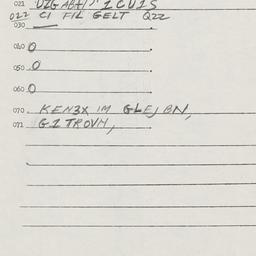 021 UZGABH 1CU1S
022 CI FIL GELT QZZ
030
040 O
050 O
060 O
070 KEN3X IM GLEJ BN,
071 G1 TROVH,